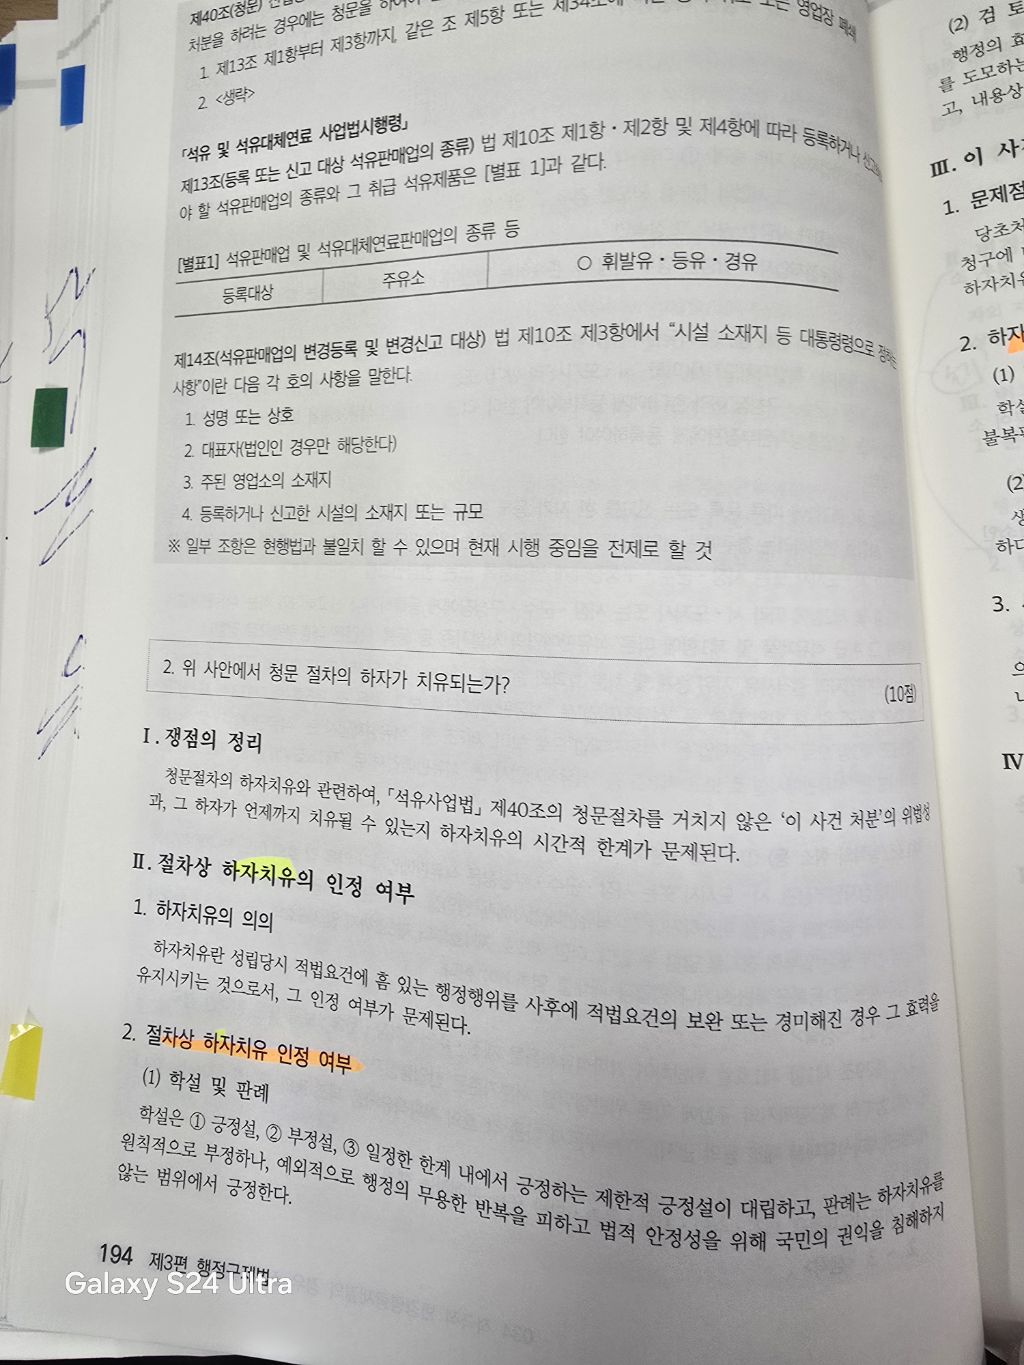 제40조(청문)
처분을 하려는 경우에는 청문을
1. 제13조 제1항부터 제3항까지, 같은 조 제5항 또는 제34조에 또는 영업장 폐쇄
2. <생략>
「석유 및 석유대체연료 사업법시행령」
제13조(등록 또는 신고 대상 석유판매업의 종류) 법 제10조 제1항·제2항 및 제4항에 따라 등록하거나 신고
야 할 석유판매업의 종류와 그 취급 석유제품은 [별표 1]과 같다.
[별표1] 석유판매업 및 석유대체연료판매업의 종류 등
등록대상 주유소 ○ 휘발유·등유·경유
제14조(석유판매업의 변경등록 및 변경신고 대상) 법 제10조 제3항에서 "시설 소재지 등 대통령령으로 정하는
사항"이란 다음 각 호의 사항을 말한다.
1. 성명 또는 상호
2. 대표자(법인인 경우만 해당한다)
3. 주된 영업소의 소재지
4. 등록하거나 신고한 시설의 소재지 또는 규모
※ 일부 조항은 현행법과 불일치 할 수 있으며 현재 시행 중임을 전제로 할 것
2. 위 사안에서 청문 절차의 하자가 치유되는가?
(10점)
Ⅰ. 쟁점의 정리
청문절차의 하자치유와 관련하여, 「석유사업법」 제40조의 청문절차를 거치지 않은 '이 사건 처분'의 위법성
과, 그 하자가 언제까지 치유될 수 있는지 하자치유의 시간적 한계가 문제된다.
Ⅱ. 절차상 하자치유의 인정 여부
1. 하자치유의 의의
하자치유란 성립당시 적법요건에 흠 있는 행정행위를 사후에 적법요건의 보완 또는 경미해진 경우 그 효력을
유지시키는 것으로서, 그 인정 여부가 문제된다.
2. 절차상 하자치유 인정 여부
(1) 학설 및 판례
학설은 ① 긍정설, ② 부정설, ③ 일정한 한계 내에서 긍정하는 제한적 긍정설이 대립하고, 판례는 하자치유를
원칙적으로 부정하나, 예외적으로 행정의 무용한 반복을 피하고 법적 안정성을 위해 국민의 권익을 침해하지
않는 범위에서 긍정한다.
194 제3편 행정구제법
Galaxy S24 Ultra
(2) 검 토
행정의 효
를 도모하는
고, 내용상
Ⅲ. 이 사
1. 문제점
당초처
청구에
하자치유
2. 하자
(1)
학설
불복
(2)
하다
3.
Ⅳ